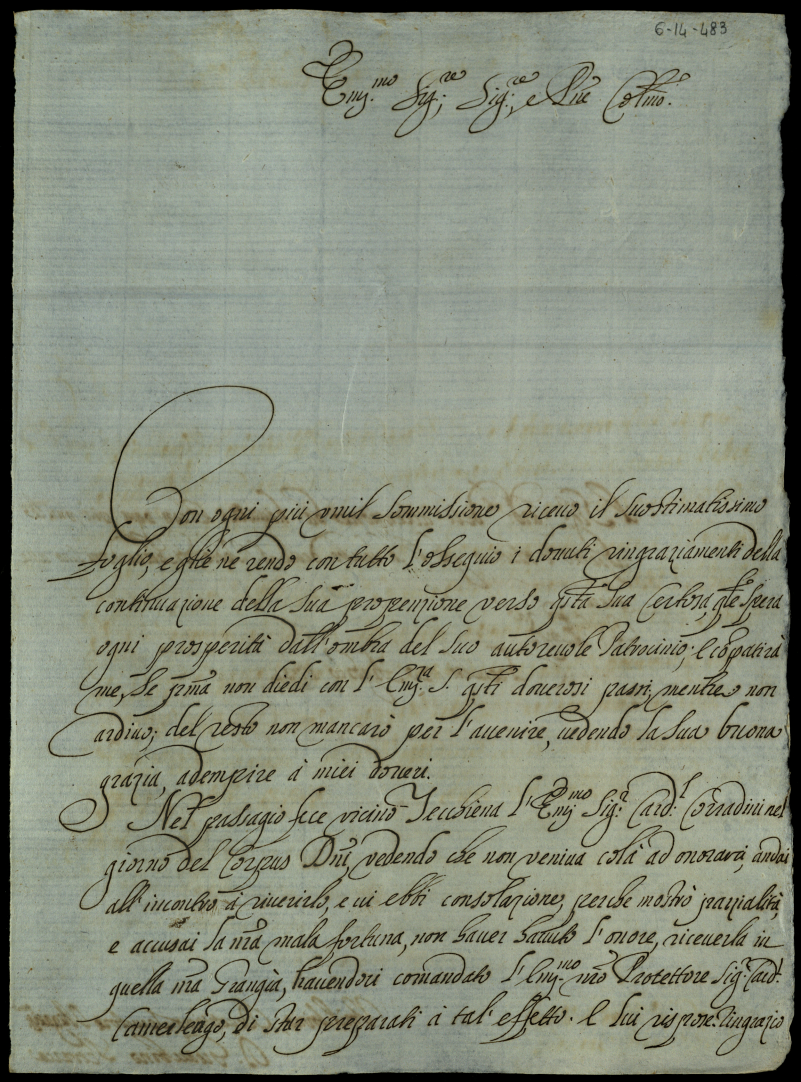 6-14-483
Em.mo Sig:re Sig:re, e Pne Colmo:
Con ogni più vmil sommissione riceuo il suo stimatissimo
foglio, e glie ne rendo con tutto l'ossequio i douuti ringraziamenti della
continuazione della Sua propenzione verso qsta sua Certosa, qle spera
ogni prosperità dall'ombra del suo autoreuole Patrocinio; e cõpatirà
me, se prima non diedi con l'Em.za S. qsti douerosi passi, mentre non
ardiuo; del resto non mancarò per l'auuenire, vedendo la Sua buona
grazia, adempire à miei doueri.
Nel passagio fece vicino Tecchiena l'Em.mo Sig:r Card:l Corradini nel
giorno del Corpus Dni, vedendo che non veniua colà ad onorarci, andai
all'incontro à riuerirlo, e vi ebbi consolazione, perche mostrò parzialità,
e accusai la nra mala fortuna, non hauer hauuto l'onore, riceuerla in
quella nra Grangia, hauendoci comandato l'Em.mo nro Protettore Sig:r Card:l
Camerlengo, di star preparati à tal' effetto. E lui rispose: ringrazio